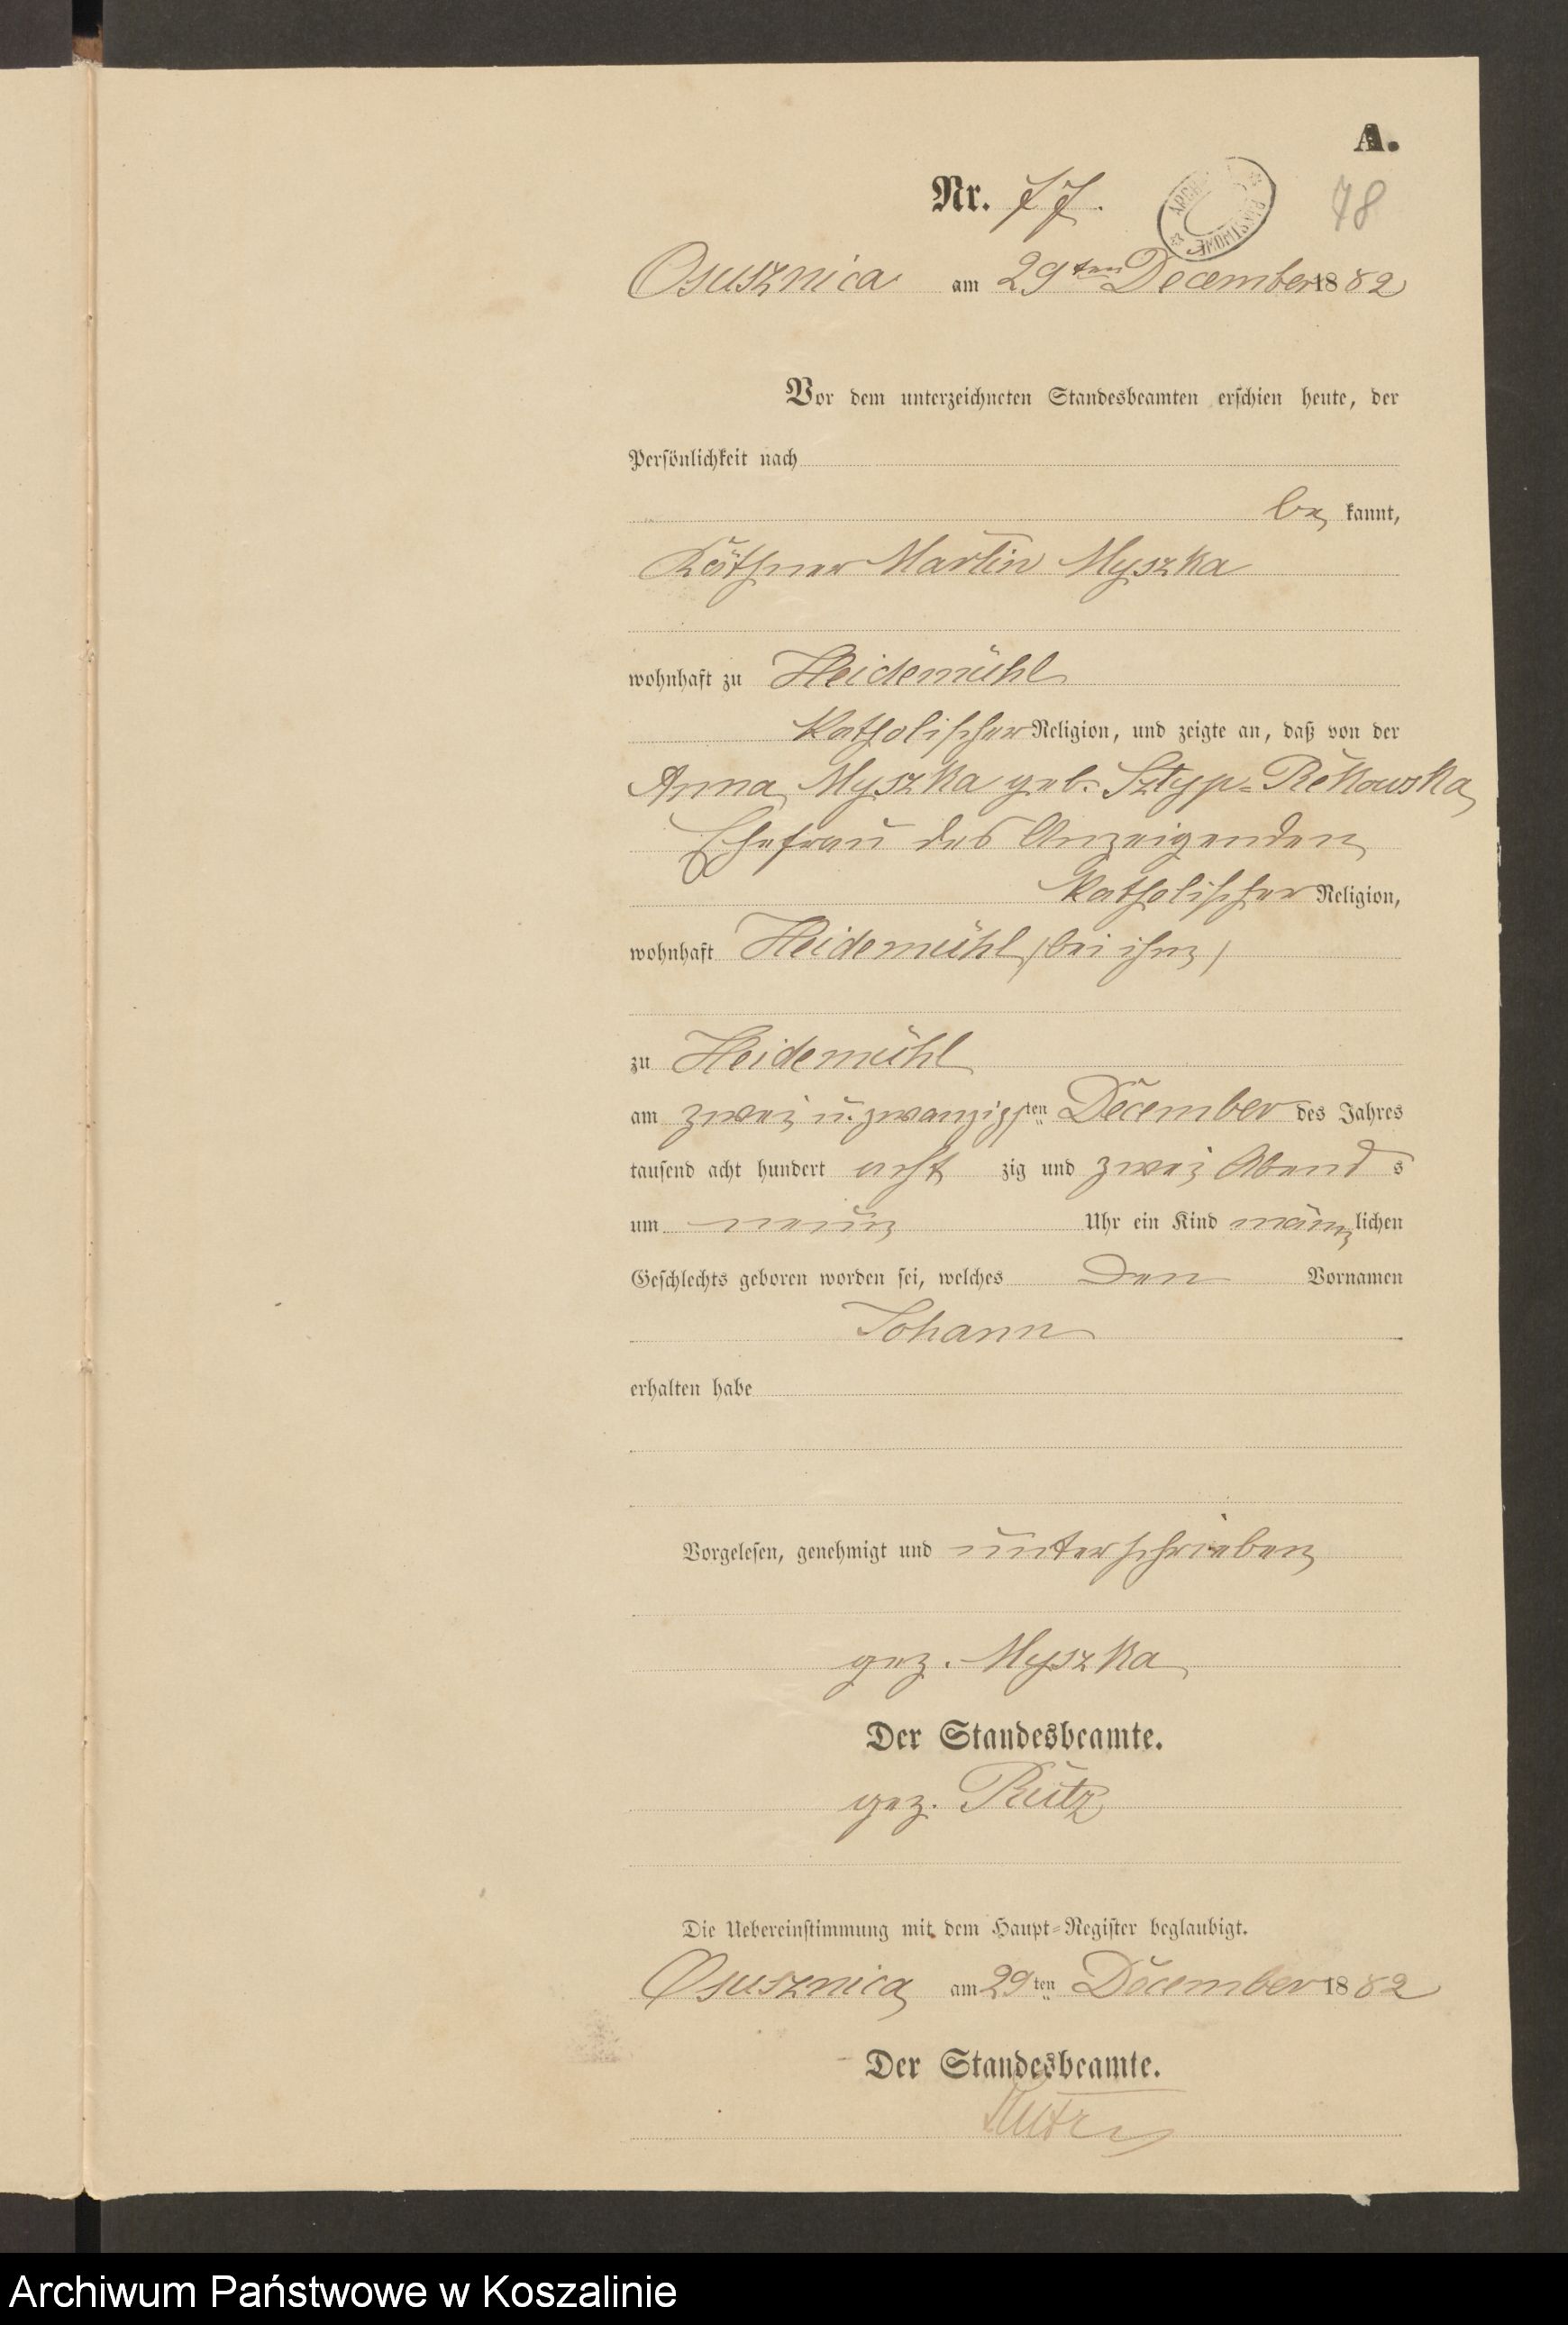 A.
Nr. 77.
78
Osusznica am 29ten December 1882
Vor dem unterzeichneten Standesbeamten erschien heute, der
Persönlichkeit nach
be kannt,
Käthner Martin Myszka
wohnhaft zu Heidemühl
katholischer Religion, und zeigte an, daß von der
Anna Myszka geb. Sztyp-Rekowska
Ehefrau des Anzeigenden
katholischer Religion,
wohnhaft Heidemühl (bei ihm)
zu Heidemühl
am zwei u. zwanzigsten December des Jahres
tausend acht hundert acht zig und zwei Abend s
um neun Uhr ein Kind männlichen
Geschlechts geboren worden sei, welches den Vornamen
Johann
erhalten habe
Vorgelesen, genehmigt und unterschrieben
gez. Myszka
Der Standesbeamte.
gez. Rutz
Die Uebereinstimmung mit dem Haupt-Register beglaubigt.
Osusznica am 29ten December 1882
Der Standesbeamte.
Rutz
Archiwum Państwowe w Koszalinie